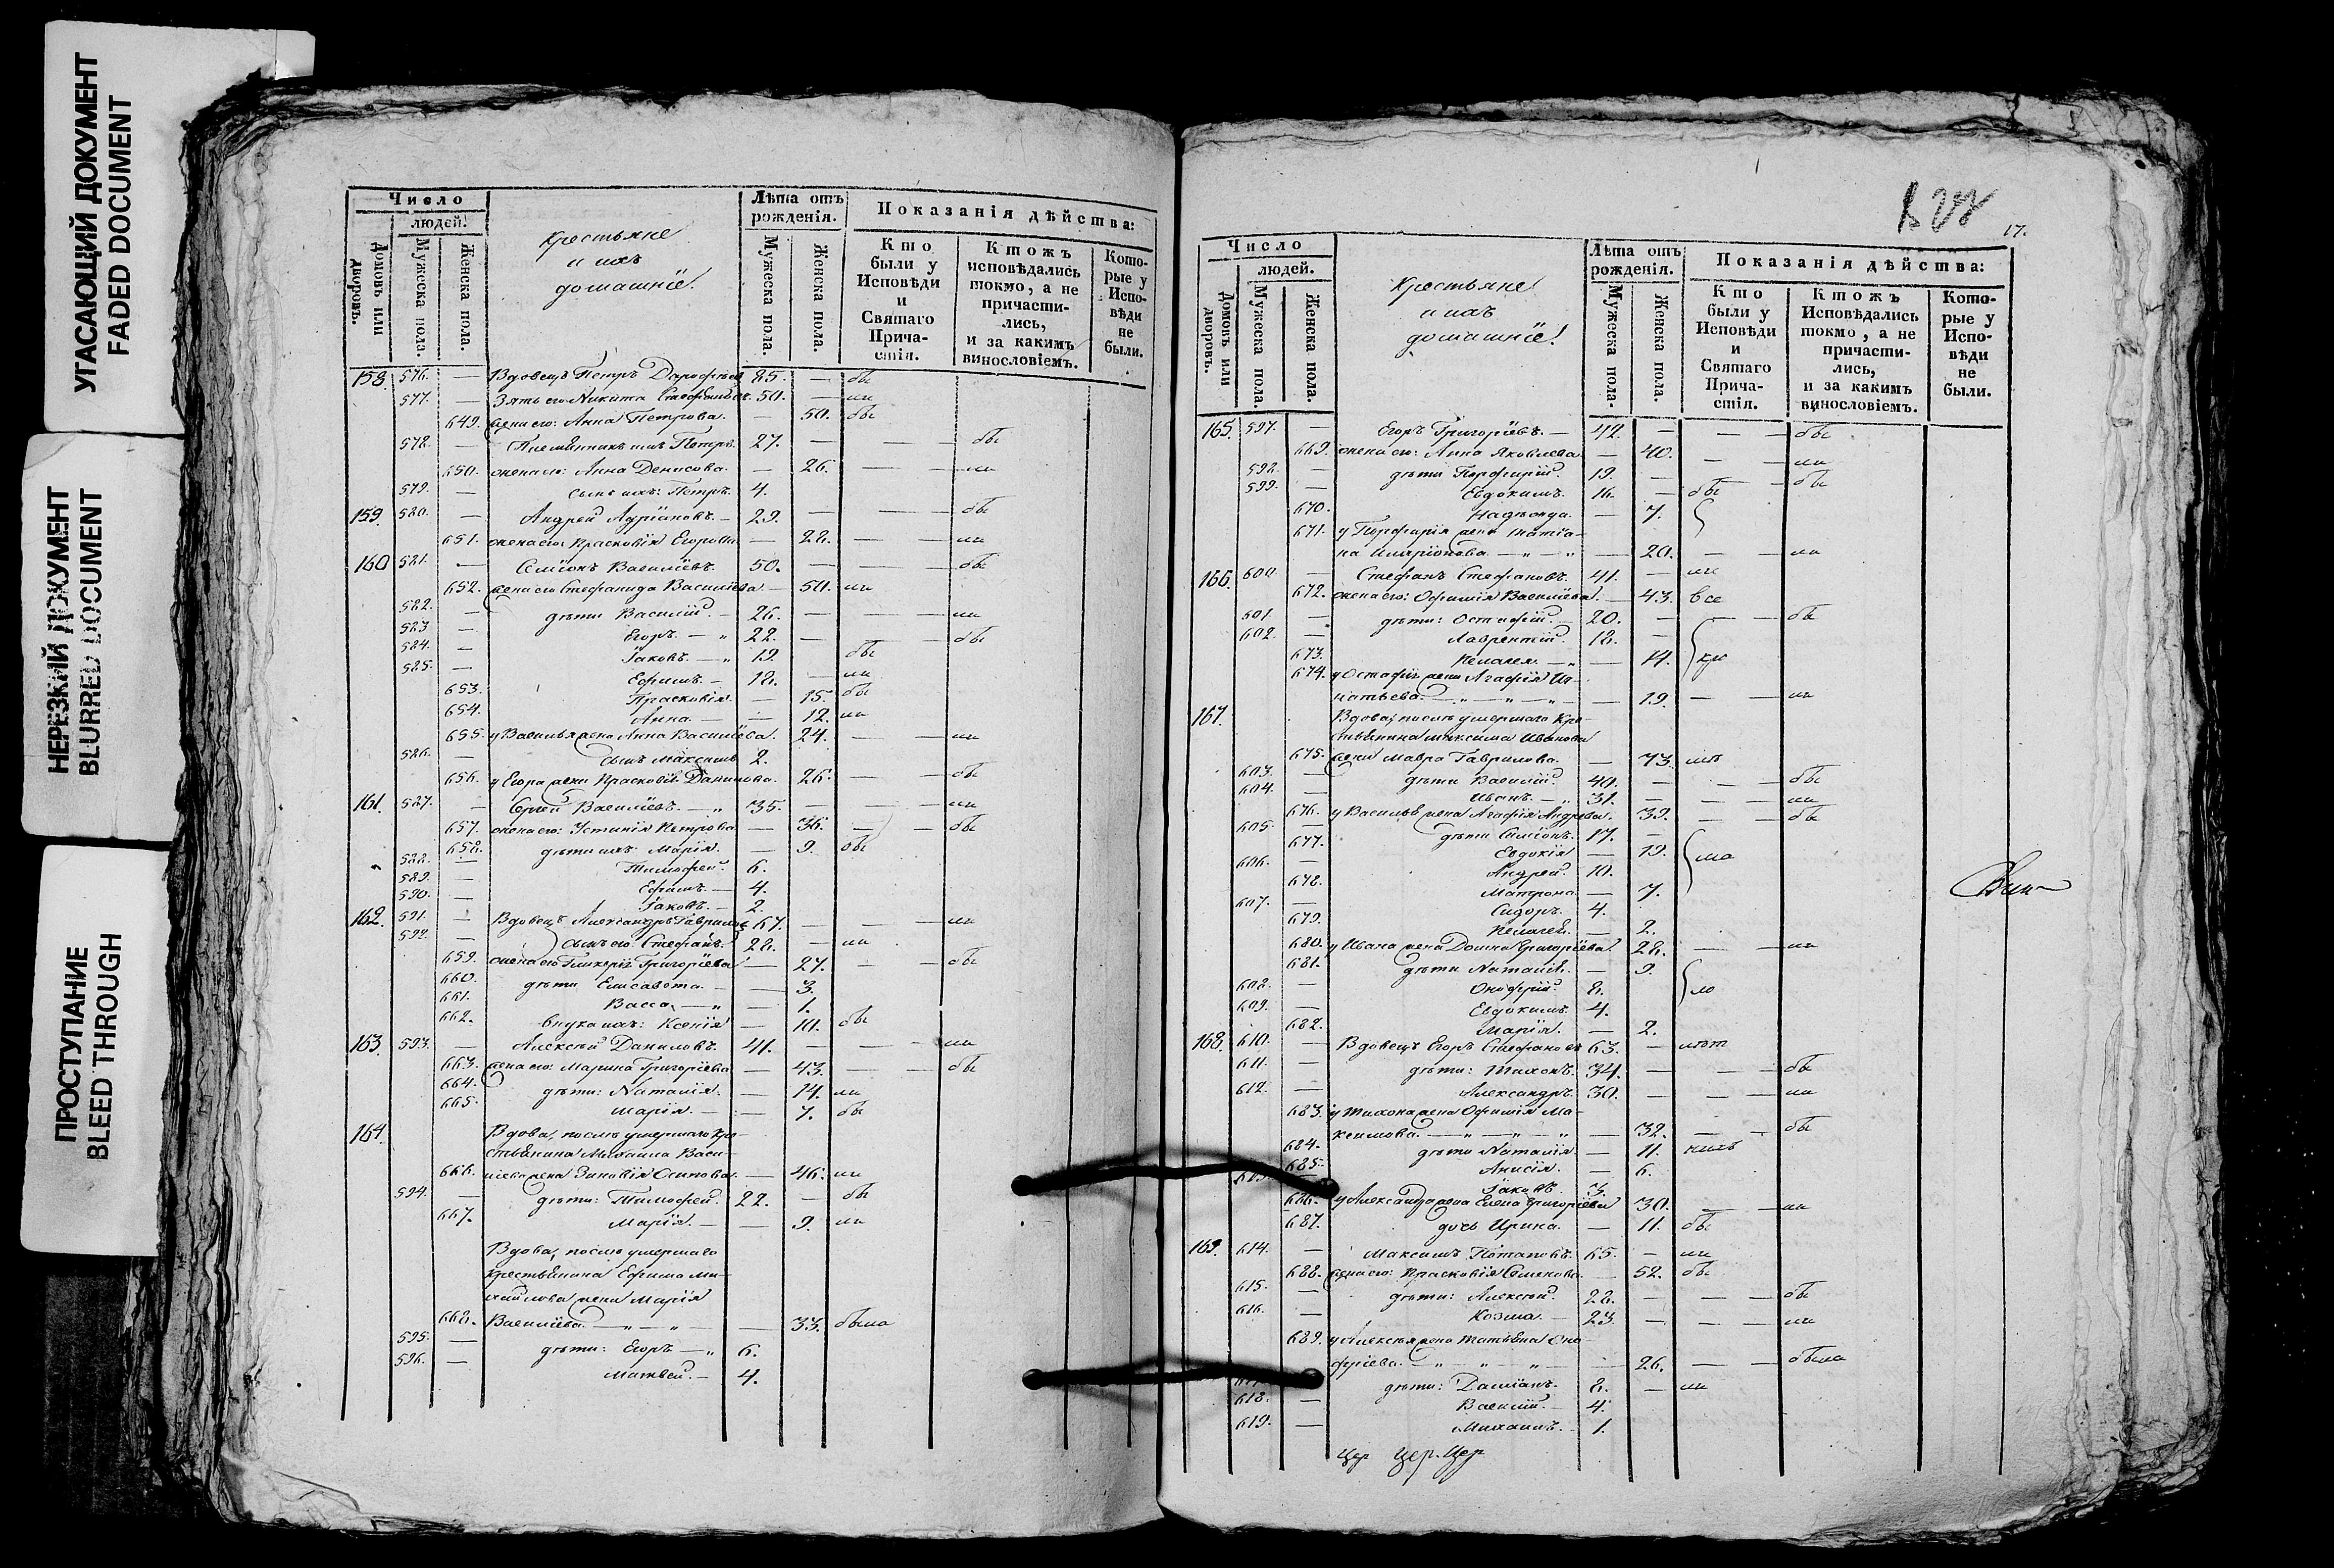 УГАСАЮЩИЙ ДОКУМЕНТ
FADED DOCUMENT
НЕРЕЗКИЙ ДОКУМЕНТ
BLURRED DOCUMENT
ПРОСТУПАНИЕ
BLEED THROUGH
Число
людей.
Домовъ или дворовъ.
Мужеска пола.
Женска пола.
Крестьяне
и ихъ
домашніе.
Лѣта отъ
рожденія.
Мужеска пола.
Женска пола.
Показанія дѣйства:
Кто
были у
Исповѣди
и
Святаго
Прича-
стія.
Ктожъ
исповѣдались
токмо, а не
причасти-
лись,
и за какимъ
винословіемъ.
Кото-
рые у
Испо-
вѣди
не
были.
158. 576. — Вдовецъ Петръ 85. — бы
577. — Зять его Никита 50. — ли
649. жена его: Анна Петрова. — 50. бы
578. — Племянникъ ихъ Петръ. 27. — — бы
650. жена его: Анна Денисова. — 26. — ли
579. — сынъ ихъ: Петръ. 4.
159. 580. — Андрей Адріановъ. — 29. — — бы
651. жена его: Прасковія — 28. — ли
160 581. — Симіонъ Василіевъ. 50. — — бы
652. жена его Стефанида Василіева — 50. ли
582. — дѣти Василій. — 26. — — ли
583 — Егоръ. — „ 22. — — бы
584. — Іаковъ. — „ 19. — бы
585. — Ефимъ. — 18. — ли
653. Прасковія. — 15. бы
654. Анна. — — 12. ли
655. у Василья жена Анна Василіева. 24. — ли
586. — сынъ Максимъ 2.
656. у Егора жена Прасковія Данилова. 26. — бы
161. 587. — Сергій Василіевъ. — „ 35. — — ли
657. жена его: Устинія Петрова — 36. — бы
658. дѣти ихъ: Марія. — 9. бы
588. — Тимофей. 6.
589. — Ефимъ. — 4.
590. — Іаковъ. — 2.
162. 591. — Вдовецъ Александръ 67. — — ли
592. — сынъ его: Стефанъ. 28. — ли
659. жена его Гликерія Григоріева — 27. — бы
660. дѣти Елисавета. — — 3.
661. Васса. — „ — 1.
662. внука ихъ: Ксенія — 10. бы
163. 593. — Алексѣй Даниловъ. 41. — — ли
663. жена его: Марина Григоріева — 43. — бы
664. дѣти: Наталія. — 14. ли
665. Марія. — — 7. бы
164. Вдова, послѣ умершаго кре-
стьянина Михаила Васи-
666. ліева жена Зиновія Осипова. — 46. ли
594. — дѣти: Тимофей. 22. — бы
667. Марія. — — 9. ли
Вдова, послѣ умершаго
крестьянина Ефима Ми-
хайлова жена Марія
668. Василіева. — „ — „ — 33. была
595. — дѣти: Егоръ — „ 6.
596. — Матвей. — 4.
17.
Число
людей.
Домовъ или дворовъ.
Мужеска пола.
Женска пола.
Крестьяне
и ихъ
домашніе.
Лѣта отъ
рожденія.
Мужеска пола.
Женска пола.
Показанія дѣйства:
Кто
были у
Исповѣди
и
Святаго
Прича-
стія.
Ктожъ
Исповѣдались
токмо, а не
причасти-
лись,
и за какимъ
винословіемъ.
Кото-
рые у
Испо-
вѣди
не
были.
165. 597. — Егоръ Григоріевъ. — 42. — — бы
669. жена его: Анна Яковлева — 40. — ли
598. — дѣти Порфирій. 19. — — бы
599. — Евдокимъ. 16. — бы
670. Надежда. — 7.
671. у Порфирія жена Татіа-
на Иларіонова. — „ — „ — 20. — ли
166. 600. — Стефанъ Стефановъ. 41. — ли
672. жена его: Офимія Василіева. — 43. все
601 — дѣти: Остафій. — 20. — — бы
602. — Лаврентій. 18. —
673. Пелагея. — „ — 14.
674. у Остафія жена Агафія Иг-
натьева. — „ — „ — „ — 19. — ли
167. Вдова, послѣ умершаго кре-
стьянина Максима Иванова
675. жена Мавра Гаврилова. — 73.
603. — дѣти Василій. 40. — — бы
604. — Иванъ. — „ 31. — — ли
676. у Василья жена Агафія Андреева. 39. — бы
605. — дѣти Симіонъ. 17. —
677. Евдокія — 19. ма
606. — Андрей. 10.
678. Матрона. — 7.
607. — Сидоръ. 4.
679. Пелагея. — 2.
680. у Ивана жена Домна Григоріева. 28. — ли
681. дѣти Наталія. — 9.
608. — Онофрій. 8. ло
609. — Евдокимъ. 4.
682. Марія. — 2.
168. 610. — Вдовецъ Егоръ Стефановъ 63. —
611. — дѣти: Тихонъ. 34. — — бы
612. — Александръ. 30. — — ли
683. у Тихона жена Офимія Ма-
ксимова. — „ — „ — „ — 32. — бы
684. дѣти Наталія — 11.
685. Анисія. — 6.
613. Іаковъ. 3.
686. у Александра жена Елена Григоріева 30. — ли
687. дочь Ирина. — 11. бы
169. 614. — Максимъ Потаповъ. 65. — ли
688. жена его: Прасковія Семенова. 52. бы
615. — дѣти: Алексѣй. 28. — — бы
616. — Козма. — 23. — — ли
689. у Алексѣя жена Татьяна Оно-
фріева. — „ — „ — „ — 26. — была
дѣти: Даміанъ. 8. — ли
618. — Василій. — 4.
619. — Михаилъ. — 1.